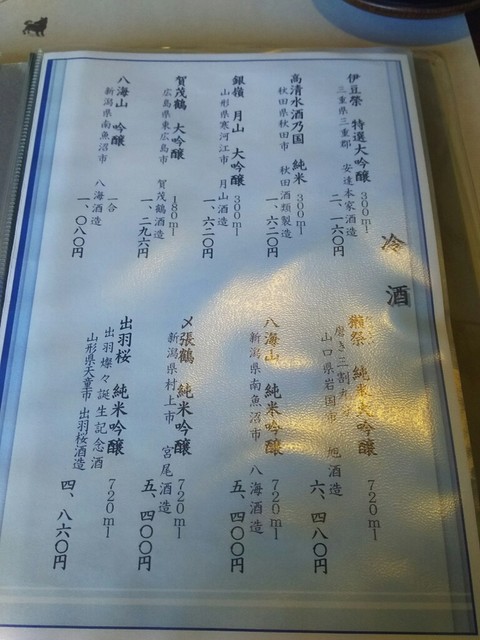 冷酒
伊豆榮 特選大吟醸 300ml
三重県三重郡 安達本家酒造 二、一六〇円
高清水酒乃国 純米 300ml
秋田県秋田市 秋田酒類製造 一、六二〇円
銀嶺月山 大吟醸 300ml
山形県寒河江市 月山酒造 一、六二〇円
賀茂鶴 大吟醸 180ml
広島県東広島市 賀茂鶴酒造 一、二九六円
八海山 吟醸 一合
新潟県南魚沼市 八海酒造 一、〇八〇円
獺祭 純米大吟醸 720ml
磨き三割九分
山口県岩国市 旭酒造 六、四八〇円
八海山 純米吟醸 720ml
新潟県南魚沼市 八海酒造 五、四〇〇円
〆張鶴 純米吟醸 720ml
新潟県村上市 宮尾酒造 五、四〇〇円
出羽桜 純米吟醸 720ml
出羽燦々誕生記念酒
山形県天童市 出羽桜酒造 四、八六〇円